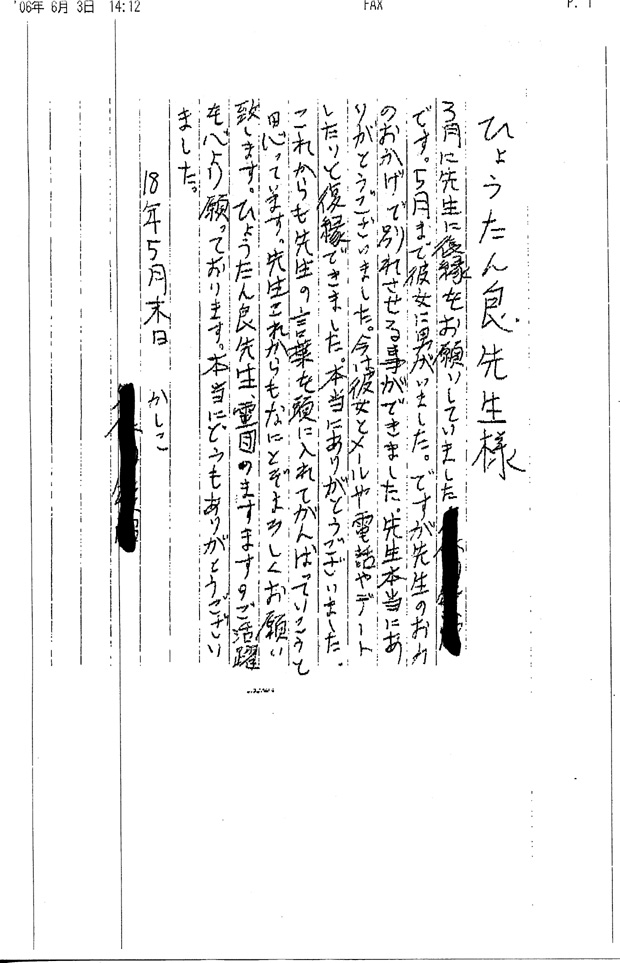 '06年 6月 3日 14:12 FAX P. 1
ひょうたん良先生様
3月に先生に復縁をお願いしていました
です。5月まで彼女に男がいました。ですが先生のおか
のおかげで別れさせる事ができました。先生本当にあ
りがとうございました。今は彼女とメールや電話やデート
したりと復縁できました。本当にありがとうございました。
これからも先生の言葉を頭に入れてがんばっていこうと
思っています。先生これからもなにとぞよろしくお願い
致します。ひょうたん良先生、霊団のますますのご活躍
を心より願っております。本当にどうもありがとうござい
ました。
18年5月末日
かしこ